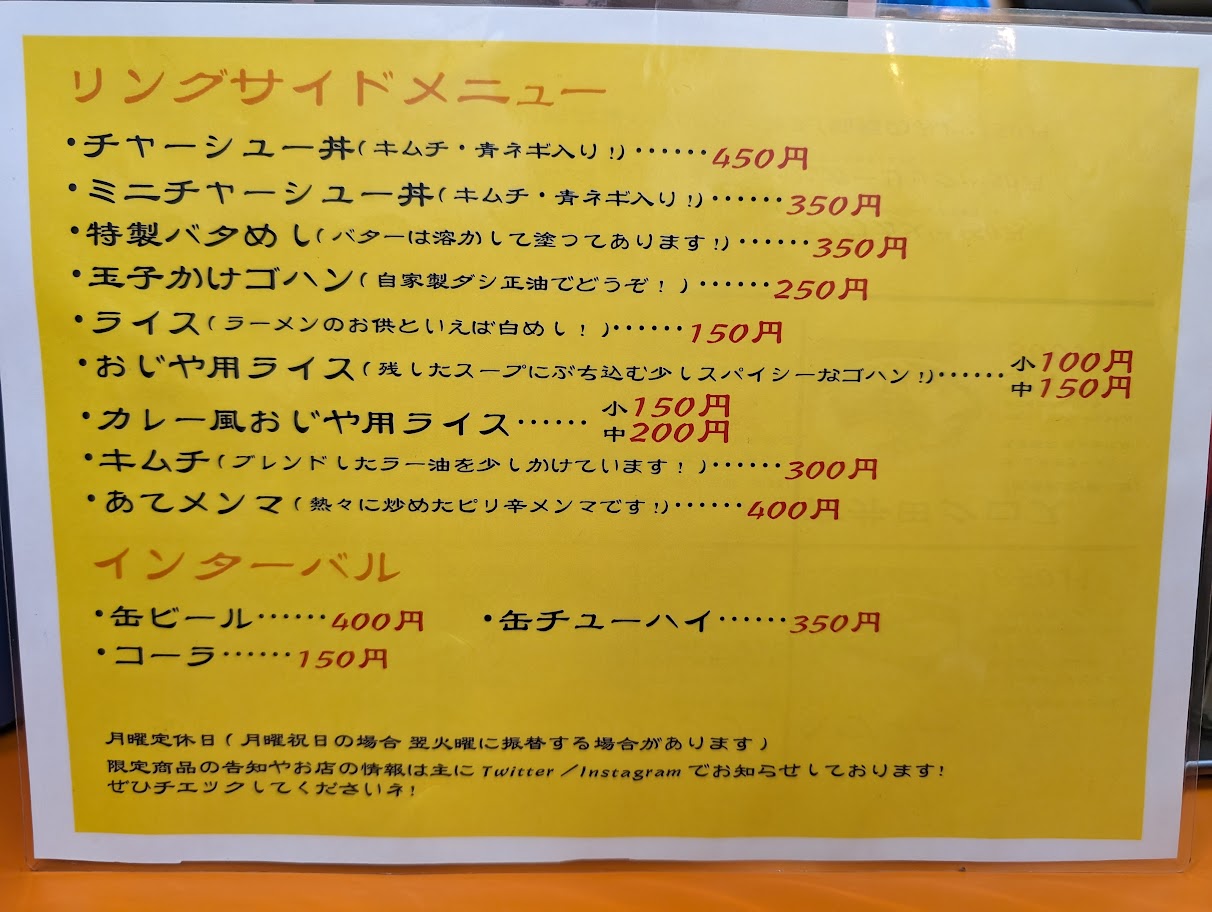 リングサイドメニュー
・チャーシュー丼(キムチ・青ネギ入り!)⋯⋯450円
・ミニチャーシュー丼(キムチ・青ネギ入り!)⋯⋯350円
・特製バタめし(バターは溶かして塗ってあります!)⋯⋯350円
・玉子かけゴハン(自家製ダシ正油でどうぞ!)⋯⋯250円
・ライス(ラーメンのお供といえば白めし!)⋯⋯150円
・おじや用ライス(残したスープにぶち込む少しスパイシーなゴハン!)⋯⋯小100円
中150円
・カレー風おじや用ライス⋯⋯小150円
中200円
・キムチ(ブレンドしたラー油を少しかけています!)⋯⋯300円
・あてメンマ(熱々に炒めたピリ辛メンマです!)⋯⋯400円
インターバル
・缶ビール⋯⋯400円 ・缶チューハイ⋯⋯350円
・コーラ⋯⋯150円
月曜定休日(月曜祝日の場合 翌火曜に振替する場合があります)
限定商品の告知やお店の情報は主にTwitter/Instagramでお知らせしております!
ぜひチェックしてくださいネ!